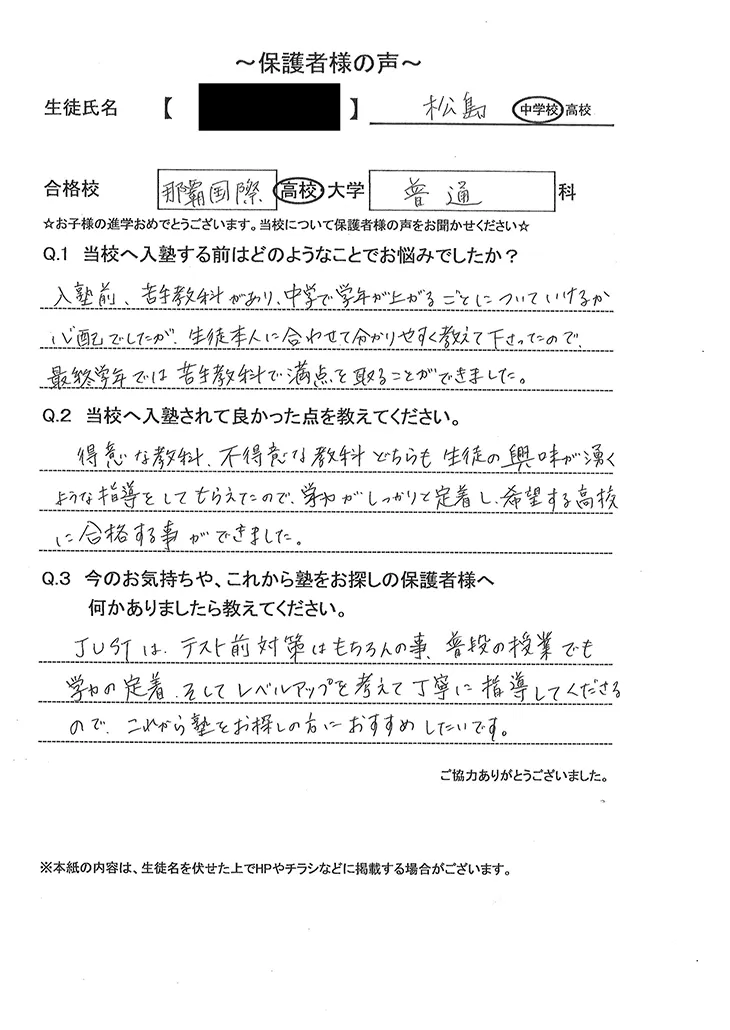 ～保護者様の声～
生徒氏名 【 】 松島 中学校 高校
合格校 那覇国際 高校 大学 普通 科
☆お子様の進学おめでとうございます。当校について保護者様の声をお聞かせください☆
Q.1 当校へ入塾する前はどのようなことでお悩みでしたか？
入塾前、苦手教科があり、中学で学年が上がるごとについていけるか
心配でしたが、生徒本人に合わせて分かりやすく教えて下さったので、
最終学年では苦手教科で満点を取ることができました。
Q.2 当校へ入塾されて良かった点を教えてください。
得意な教科、不得意な教科どちらも生徒の興味が湧く
ような指導をしてもらえたので、学力がしっかりと定着し、希望する高校
に合格する事ができました。
Q.3 今のお気持ちや、これから塾をお探しの保護者様へ
何かありましたら教えてください。
JUSTは、テスト前対策はもちろんの事、普段の授業でも
学力の定着、そしてレベルアップを考えて丁寧に指導してくださる
ので、これから塾をお探しの方におすすめしたいです。
ご協力ありがとうございました。
※本紙の内容は、生徒名を伏せた上でHPやチラシなどに掲載する場合がございます。